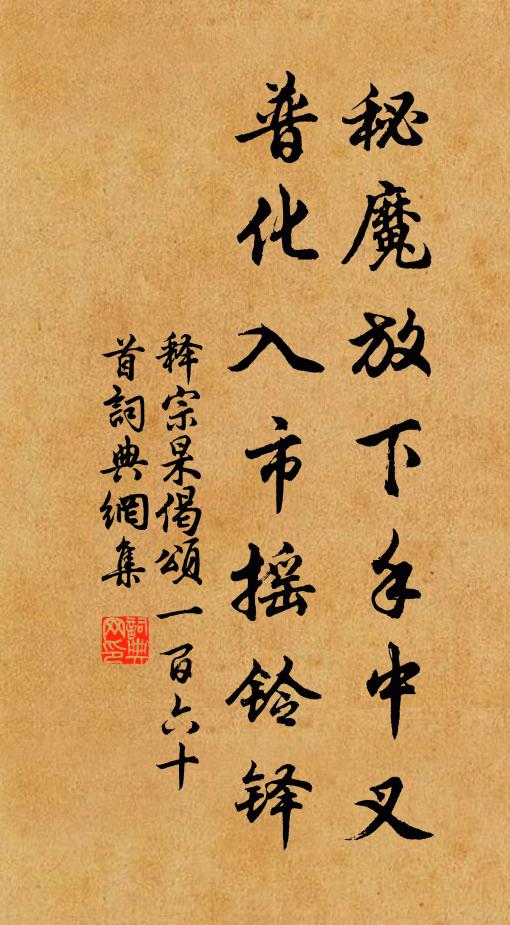 秘魔放下手中叉
普化入市摇铃铎
释宗杲偈頌一百六十
首詞典網集
詞典
网印